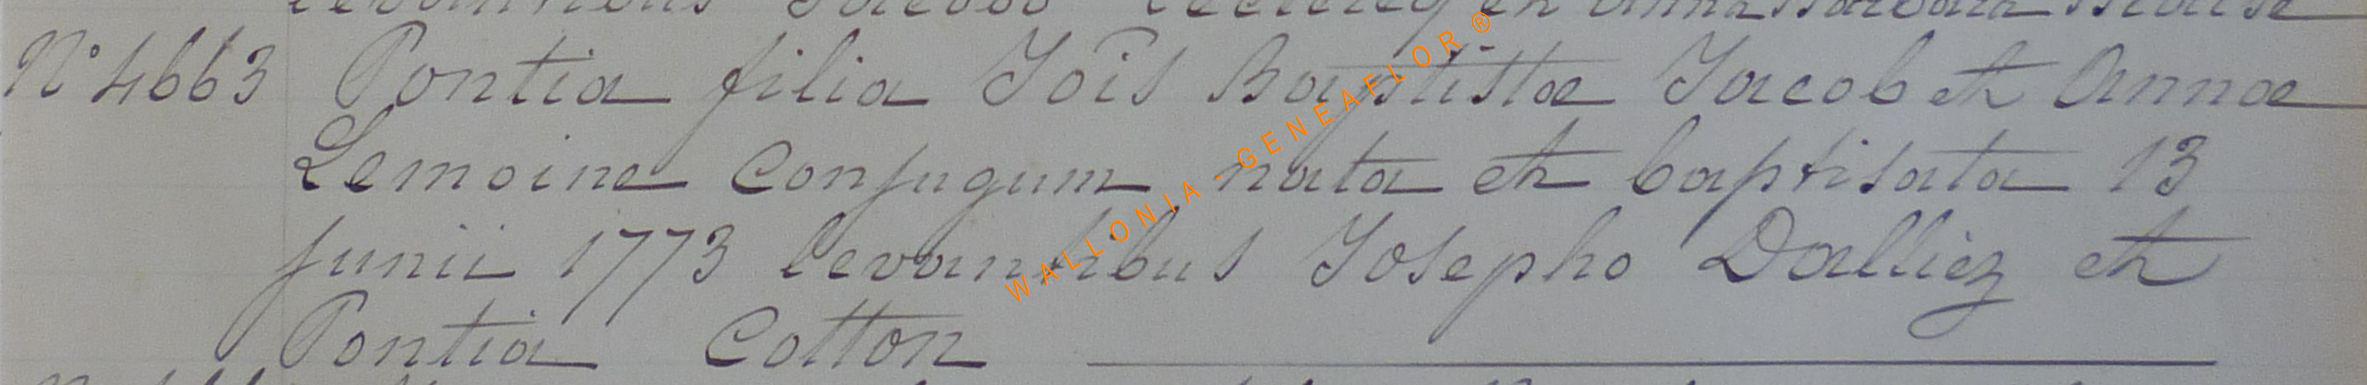 N° 4663 Pontia filia Jois Baptistae Jacob et Annae
Lemoine conjugum nata et baptisata 13
junii 1773 levantibus Josepho Dalliez et
Pontia Cotton
WALLONIA - GENEAFLOR ®